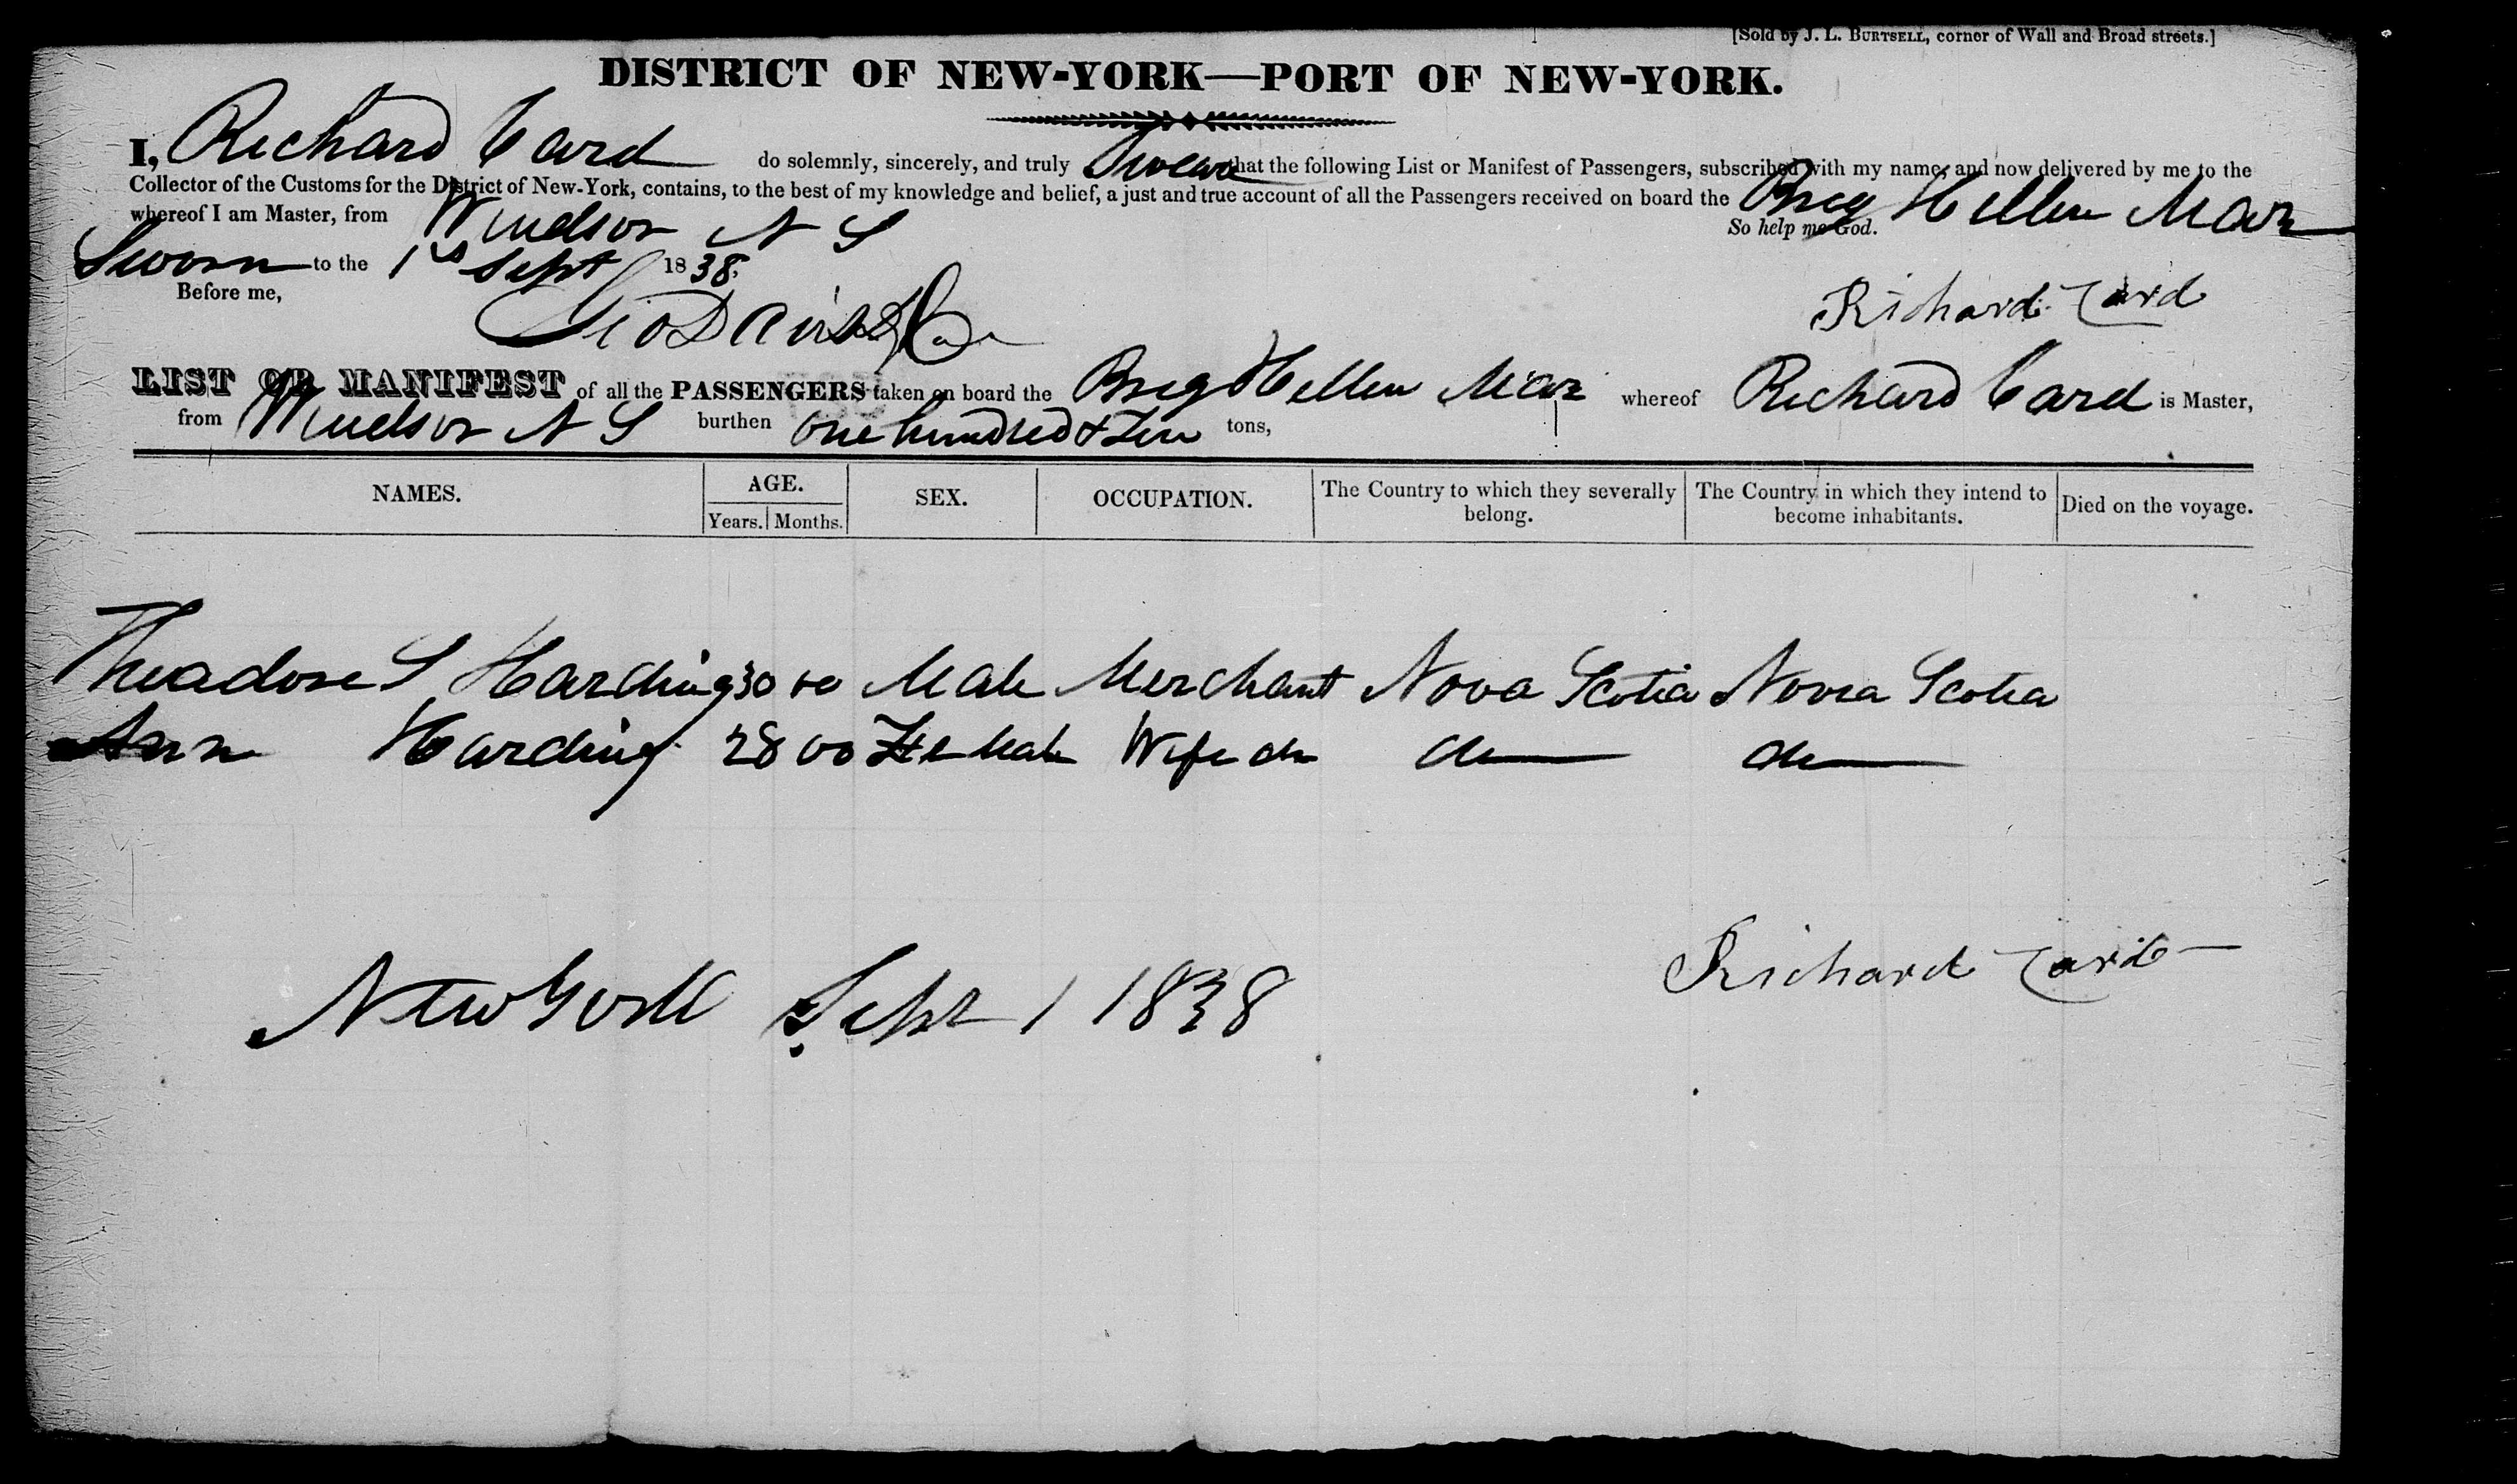 [Sold by J. L. BURTSELL, corner of Wall and Broad streets.]
DISTRICT OF NEW-YORK—PORT OF NEW-YORK.
I, Richard Card do solemnly, sincerely, and truly Swear that the following List or Manifest of Passengers, subscribed with my name, and now delivered by me to the
Collector of the Customs for the District of New-York, contains, to the best of my knowledge and belief, a just and true account of all the Passengers received on board the Brig Hellen Mar
whereof I am Master, from Windsor N S So help me God.
Sworn to the 1st Sept 1838,
Before me,
Richard Card
Geo Davis
LIST OR MANIFEST of all the PASSENGERS taken on board the Brig Hellen Mar whereof Richard Card is Master,
from Windsor N S burthen One hundred & Ten tons,
NAMES. AGE. Years. Months. SEX. OCCUPATION. The Country to which they severally belong. The Country in which they intend to become inhabitants. Died on the voyage.
Theadore S Harding 30 00 Male Merchant Nova Scotia Nova Scotia
Ann Harding 28 00 Female Wife do do do
Richard Card
New York Sept 1 1838